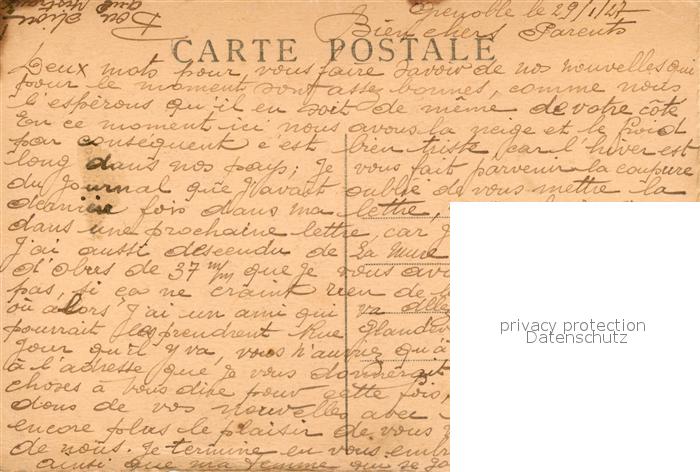 Grenoble le 29/1/27
Bien chers Parents
CARTE POSTALE
Deux mots pour vous faire savoir de nos nouvelles qui
pour le moment sont assez bonnes, comme nous
l'espérons qu'il en soit de même de votre côté
En ce moment ici nous avons la neige et le froid
par conséquent c est bien triste, car l'hiver est
long dans nos pays; Je vous fait parvenir la coupure
du Journal que J'avait oublié de vous mettre la
dernière fois dans ma lettre,
dans une prochaine lettre, car
J'ai aussi descendu de La Mure
d'obus de 37 m/m que Je vous
pas, si ça ne craint rien de
où alors J'ai un ami qui va
pourrait les prendrent Rue
Jour qu'il y va, vous n'auriez qu'à
à l'adresse que Je vous donnerait
choses à vous dire pour cette fois,
dons de vos nouvelles avec
encore plus le plaisir de vous
de nous. Je termine en vous
ainsi que ma femme qui se
privacy protection
Datenschutz